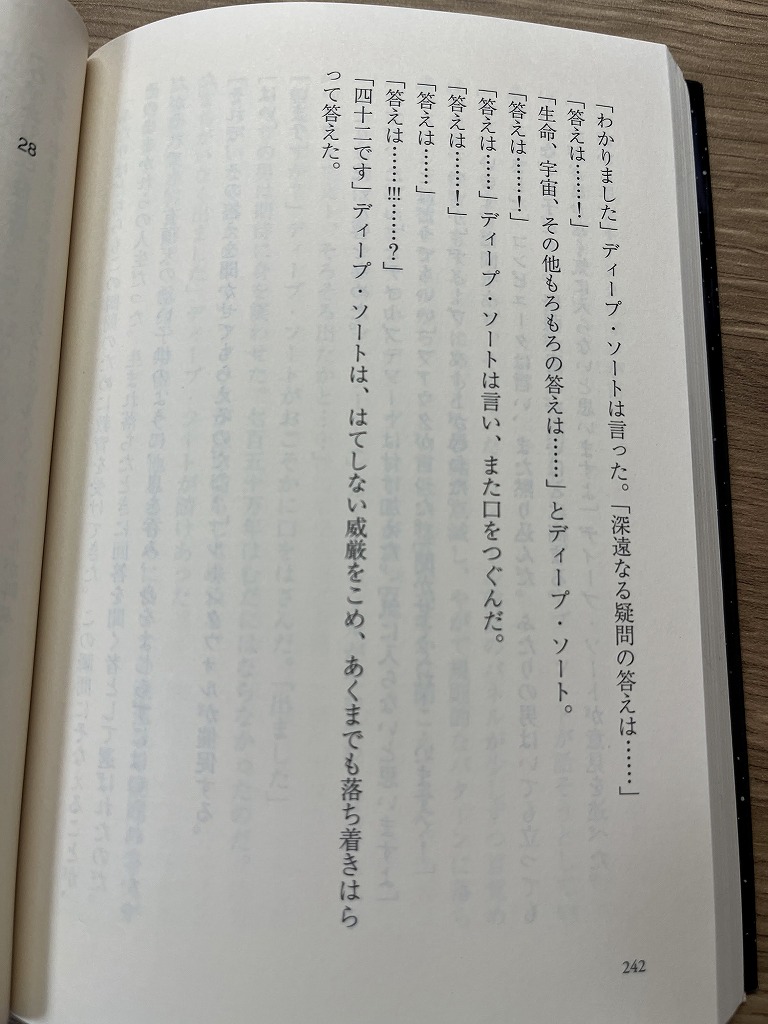 「わかりました」ディープ・ソートは言った。「深遠なる疑問の答えは……」
「答えは……！」
「生命、宇宙、その他もろもろの答えは……」とディープ・ソート。
「答えは……！」
「答えは……」ディープ・ソートは言い、また口をつぐんだ。
「答えは……！」
「答えは……」
「答えは……!!!……？」
「四十二です」ディープ・ソートは、はてしない威厳をこめ、あくまでも落ち着きはら
って答えた。
242
28